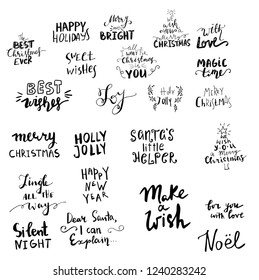 BEST
CHRISTMAS
EVER
HAPPY
HOLIDAYS
Merry
BRIGHT
wish
CHRISTMAS
with
Love
sweet
wishes
all I
want for
Christmas
is
YOU
MAGIC
time
BEST
wishes
Joy
Holly
JOLLY
MERRY
CHRISTMAS
merry
CHRISTMAS
HOLLY
JOLLY
Santa's
little
HELPER
WISH
YOU
Merry
Christmas
Jingle
ALL THE
Way
HAPPY
NEW
YEAR
Make
a
wish
for you
with love
Silent
NIGHT
Dear Santa,
I can
Explain...
Noël
shutterstock
IMAGE ID: 1240283242
www.shutterstock.com